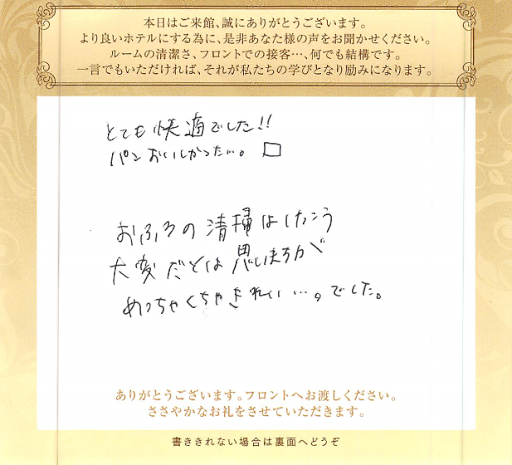 本日はご来館、誠にありがとうございます。
より良いホテルにする為に、是非あなた様の声をお聞かせください。
ルームの清潔さ、フロントでの接客…、何でも結構です。
一言でもいただければ、それが私たちの学びとなり励みになります。
とても快適でした!!
パンおいしかった…。
おふろの清掃はけっこう
大変だとは思いますが
めっちゃくちゃきれい…。でした。
ありがとうございます。フロントへお渡しください。
ささやかなお礼をさせていただきます。
書ききれない場合は裏面へどうぞ